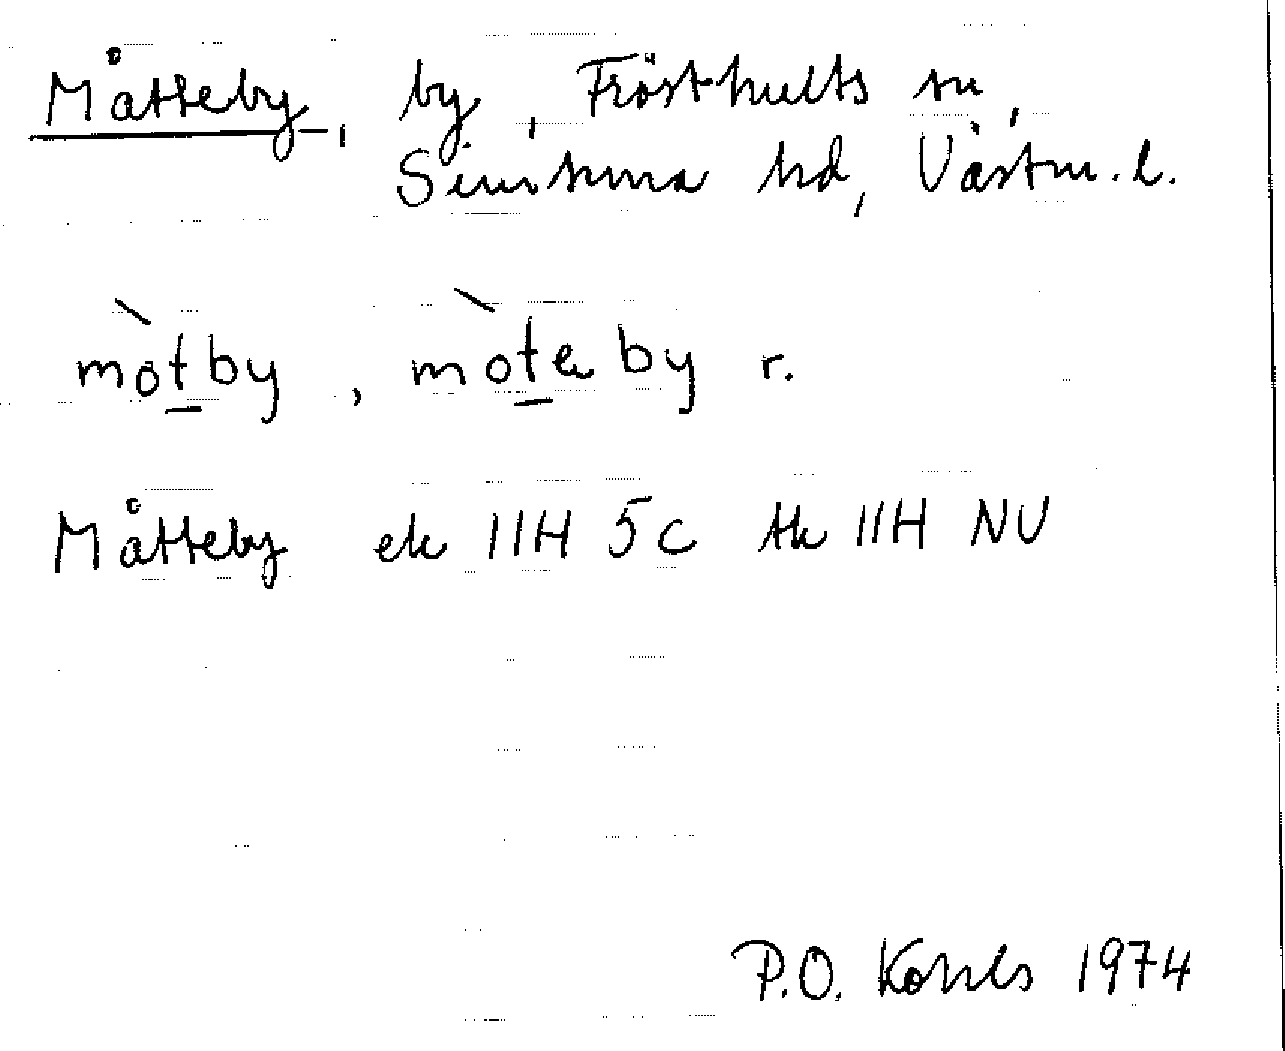 Måtteby, by, Frösthults sn,
Simtuna hd, Västm. l.
mòt̲by, mòt̲eby r.
Måtteby ek 11H 5c tk 11H NV
P.O. Kohls 1974